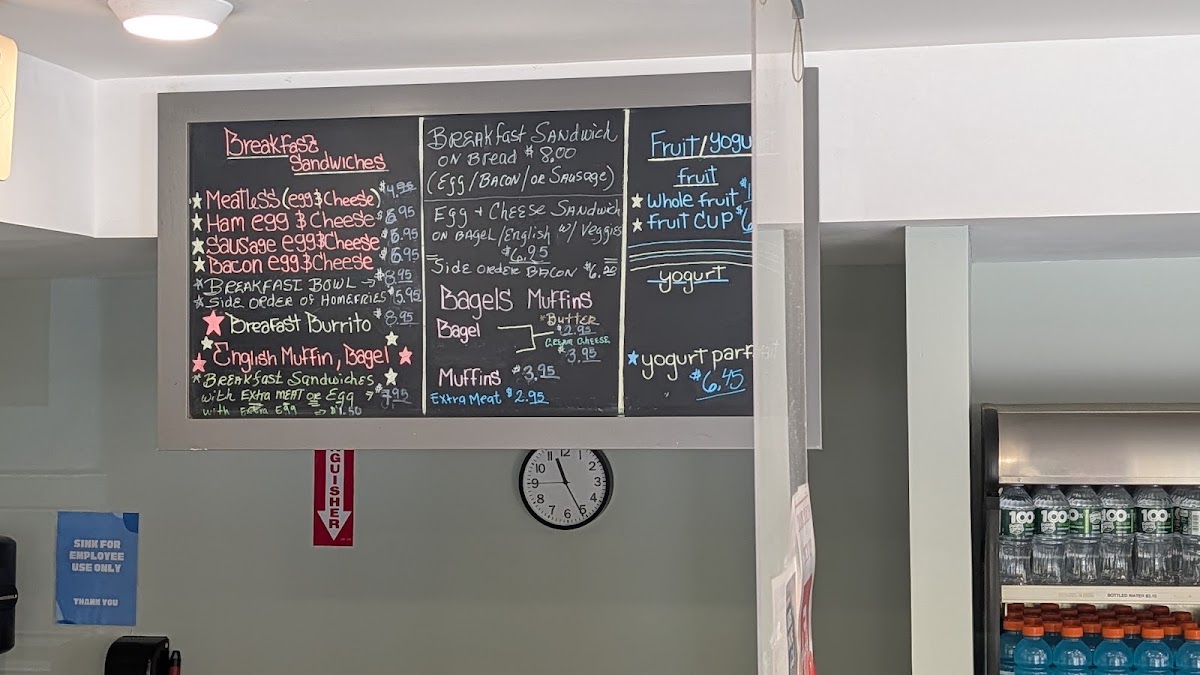 Breakfast
Sandwiches
Meatless (egg $ Cheese) $4.95
Ham egg $ Cheese $6.95
Sausage egg $ Cheese $6.95
Bacon egg $ Cheese $6.95
BREAKFAST BOWL → $8.95
SIDE ORDER OF HOMEFRIES $5.95
Breafast Burrito $8.95
English Muffin, Bagel
BREAKfast Sandwiches
with Extra MEAT or Egg → $7.95
with Extra Egg → $1.50
BREAKfast SANDwich
ON BREAD $8.00
(Egg/BACON/or SAUSAGE)
Egg + CHEESE SANDwich
ON BAgEL/English w/ Veggies
$6.95
SIDE ORDER BACON $6.20
Bagels Muffins
Butter
Bagel $2.95
CREAM CHEESE
$3.95
Muffins $3.95
Extra Meat $2.95
Fruit/yogu
fruit
Whole fruit $1
fruit CUP $6
yogurt
yogurt parf
$6.45
GUISHER
11 12 2 10 3 9 4 8 5 7 6
SINK FOR
EMPLOYEE
USE ONLY
THANK YOU
100 100 100 100 100
BOTTLED WATER